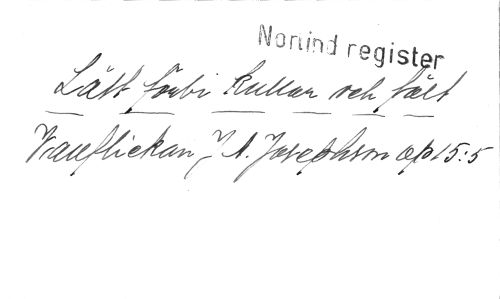 Norlind register
Lätt förbi kullar och fält
Vallflickan, J. A. Josephson op 15:5